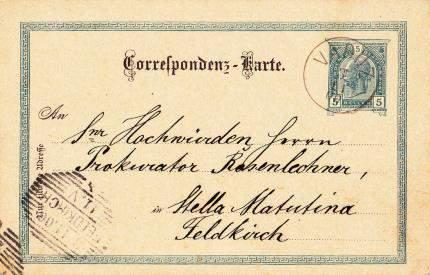 Correspondenz-Karte.
5 5
An
Snr Hochwürden Herrn
Prokurator Rosenlechner,
in Stella Matutina
Feldkirch
FELDKIRCH